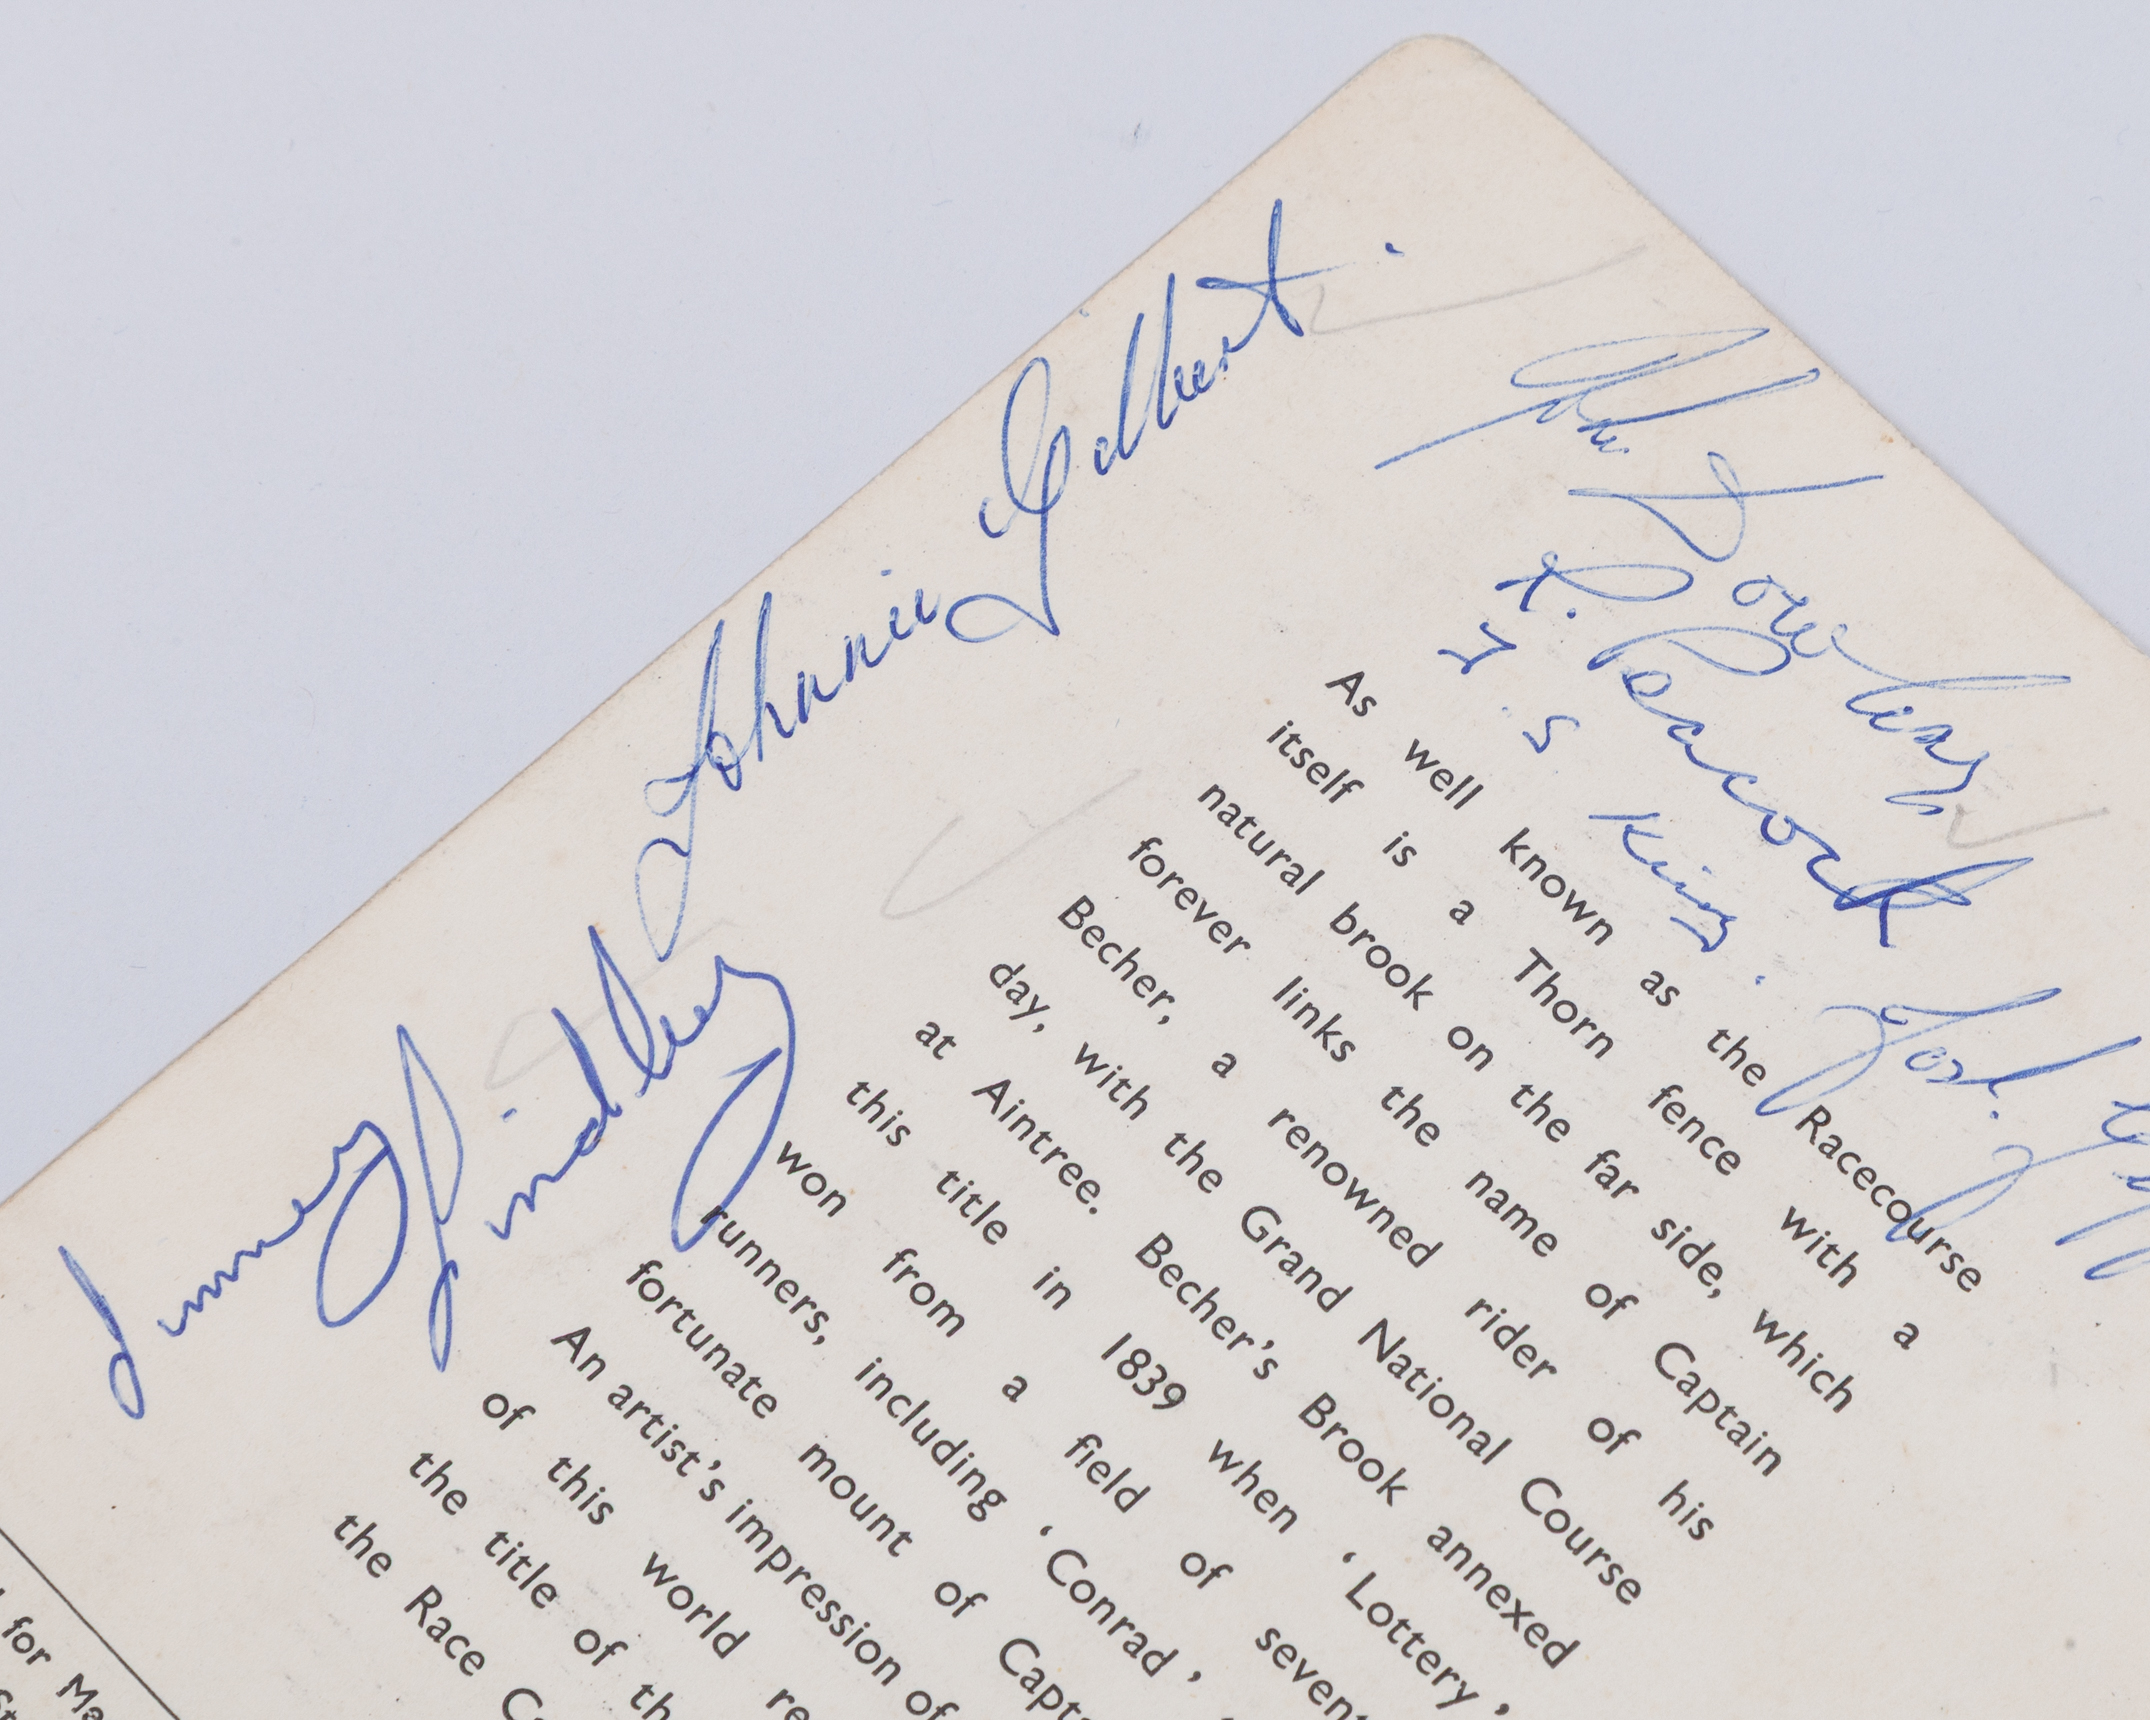 Johnnie Gilbert.
Jimmy Lindley
R. Peacock
J. S King.
As well known as the Racecourse
itself is a Thorn fence with a
natural brook on the far side, which
forever links the name of Captain
Becher, a renowned rider of his
day, with the Grand National Course
at Aintree. Becher's Brook annexed
this title in 1839 when 'Lottery'
won from a field of
runners, including 'Conrad',
fortunate mount of
An artist's impression of
of this world
the title of
the Race
for